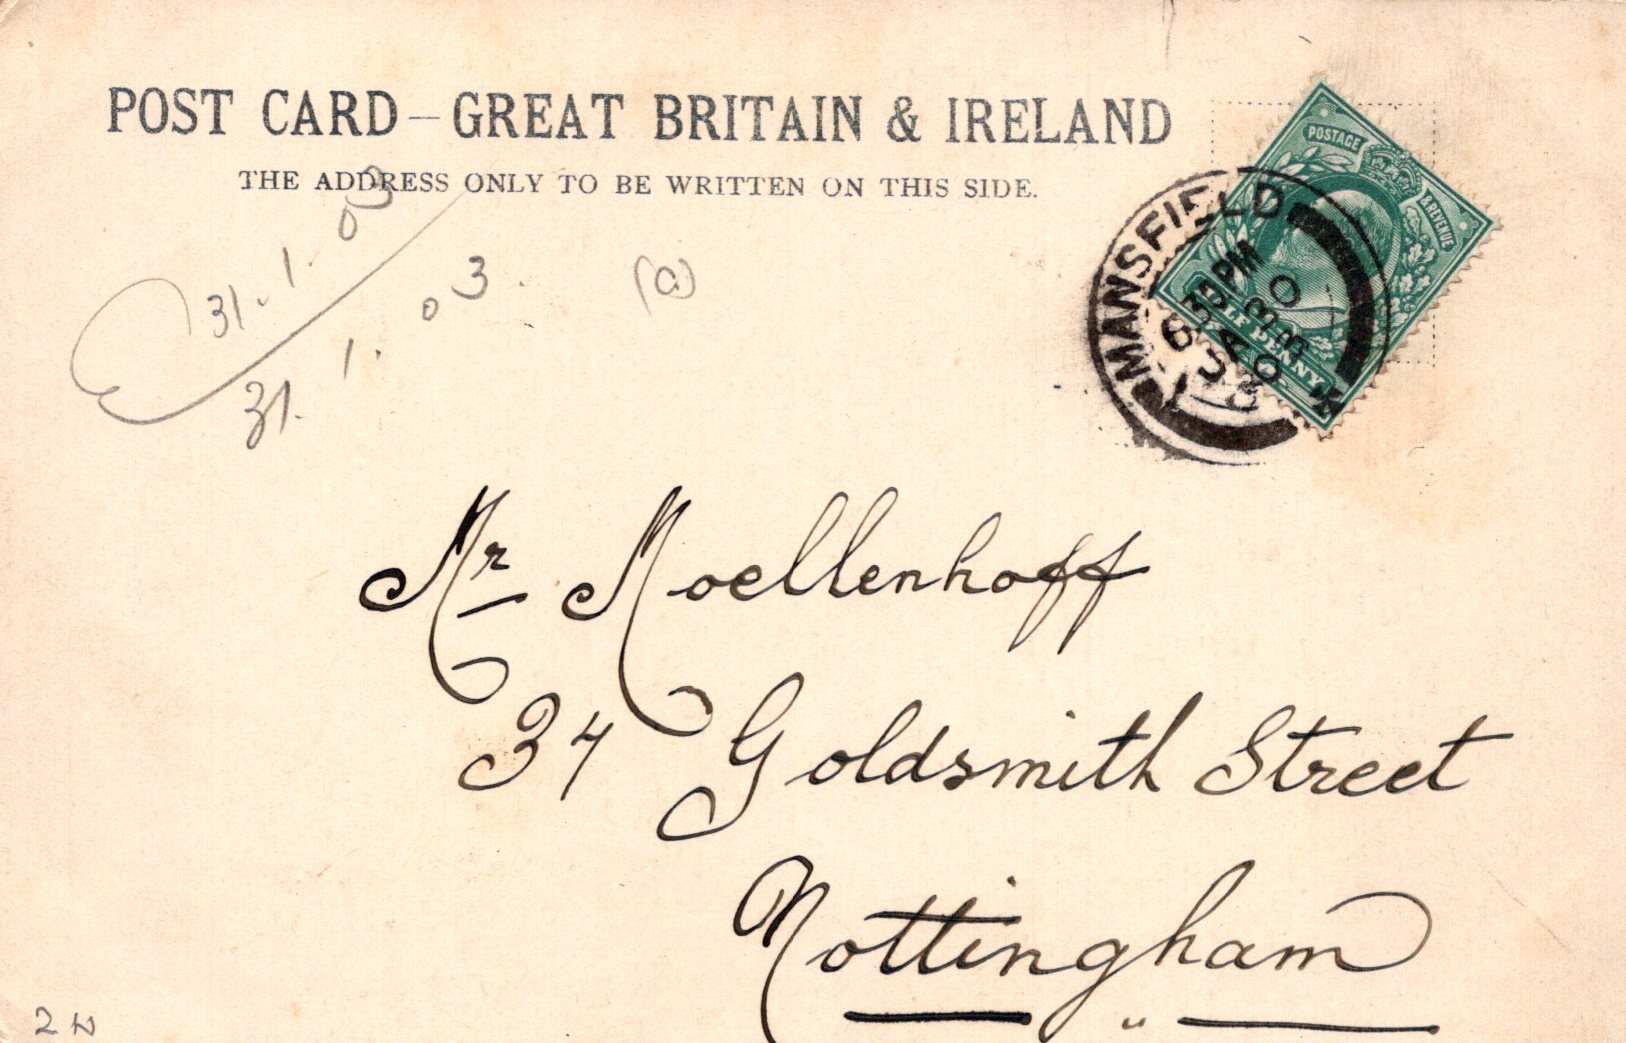 POST CARD – GREAT BRITAIN & IRELAND
THE ADDRESS ONLY TO BE WRITTEN ON THIS SIDE.
POSTAGE
& REVENUE
HALF PENNY
MANSFIELD
6 30 PM
JA 30
03
31.1.03
31.1.03.
(a)
Mr Moellenhoff
34 Goldsmith Street
Nottingham